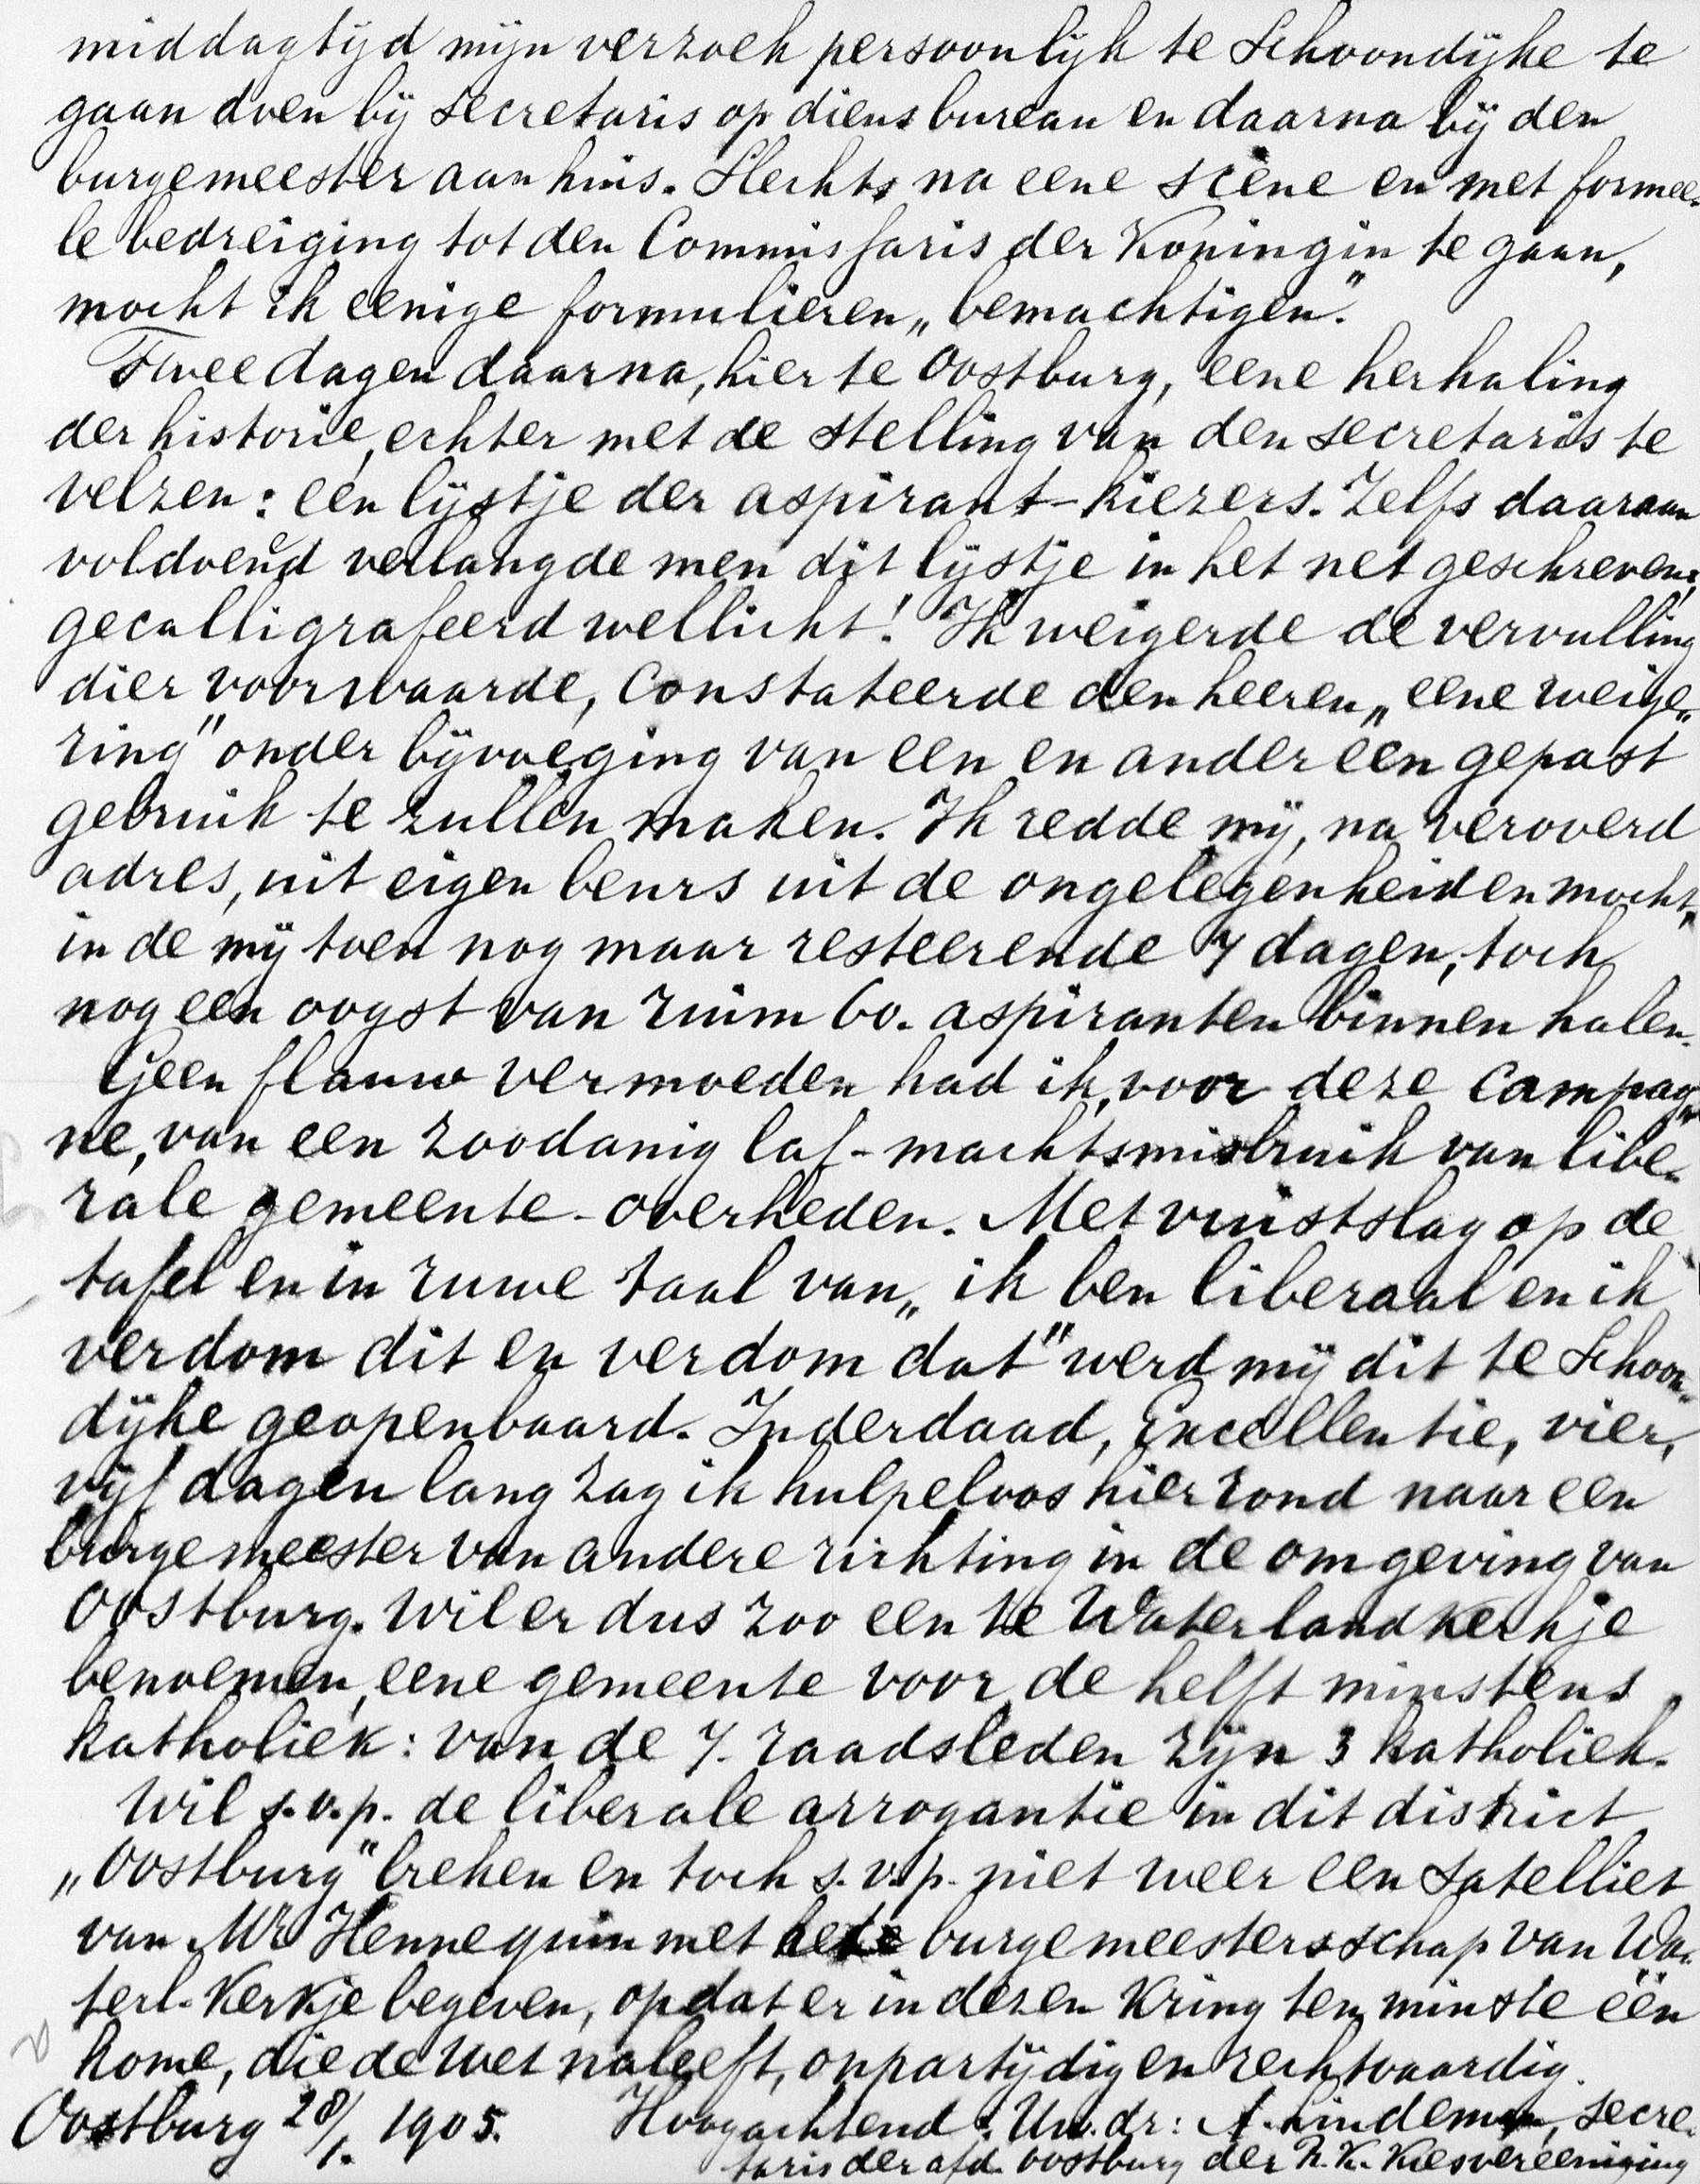 middagtijd mijn verzoek persoonlijk te Schoondijke te
gaan doen bij secretaris op diensbureau en daarna bij den
burgemeester aan huis. Slechts na eene scène en met formee-
le bedreiging tot den Commissaris der Koningin te gaan,
mocht ik eenige formulieren „bemachtigen".
Twee dagen daarna, hier te Oostburg, eene herhaling
der historie, echter met de stelling van den secretaris te
velzen: een lijstje der aspirant-kiezers. Zelfs daaraan
voldoend verlangde men dit lijstje in het net geschreven:
gecalligrafeerd wellicht! Ik weigerde de vervulling
dier voorwaarde, Constateerde den heeren „eene weige„
ring" onder bijvoeging van een en ander een gepast
gebruik te zullen maken. Ik redde mij, na veroverd
adres, uit eigen beurs uit de ongelegenheid en mocht„
in de mij toen nog maar resteerende 7 dagen, toch
nog een oogst van ruim 60. aspiranten binnen halen.
Geen flauw vermoeden had ik, voor deze Campag„
ne, van een zoodanig laf-machtsmisbruik van libe-
rale gemeente-overheden. Met vuistslag op de
tafel en in ruwe taal van „ik ben liberaal en ik
verdom dit en verdom dat" werd mij dit te Schoon-
dijke geopenbaard. Inderdaad, Excellentie, vier,
vijf dagen lang zag ik hulpeloos hier rond naar een
burgemeester van andere richting in de omgeving van
Oostburg. Wil er dus zoo een te Waterlandkerkje
benoemen, eene gemeente voor de helft minstens
katholiek: van de 7. raadsleden zijn 3 katholiek.
Wil s.v.p. de liberale arrogantie in dit district
„Oostburg" breken en toch s.v.p. niet weer een satelliet
van Mr Hennequin met burgemeestersschap van Wa-
terl-Kerkje begeven, opdat er in dezen Kring ten minste één
kome, die de wet naleeft, onpartijdig en rechtvaardig.
Oostburg 28/1. 1905. Hoogachtend: Uw. dr: A. Lindeman, secre-
taris der afd. Oostburg der R.K. Kiesvereeniging